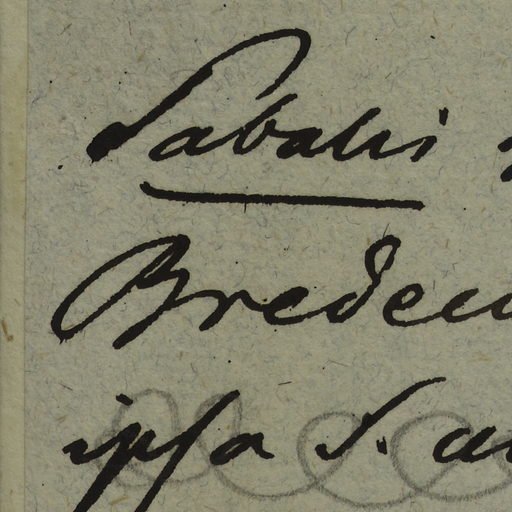 Sabalis
Bredem
ipsa S.